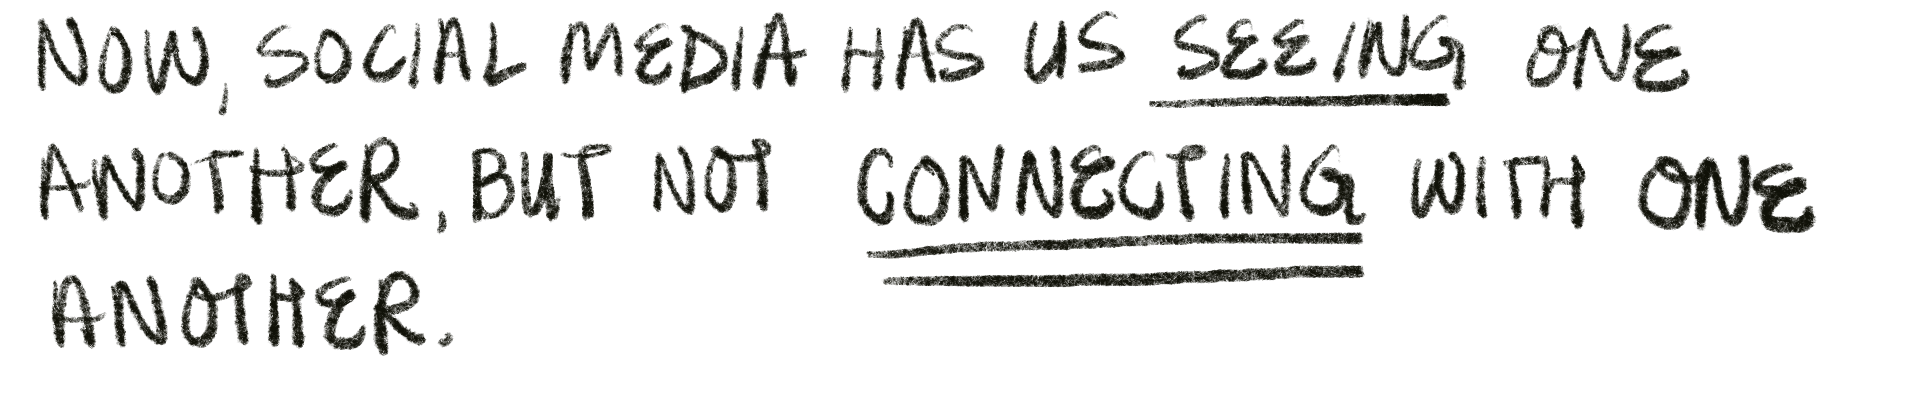 NOW, SOCIAL MEDIA HAS US SEEING ONE
ANOTHER, BUT NOT CONNECTING WITH ONE
ANOTHER.